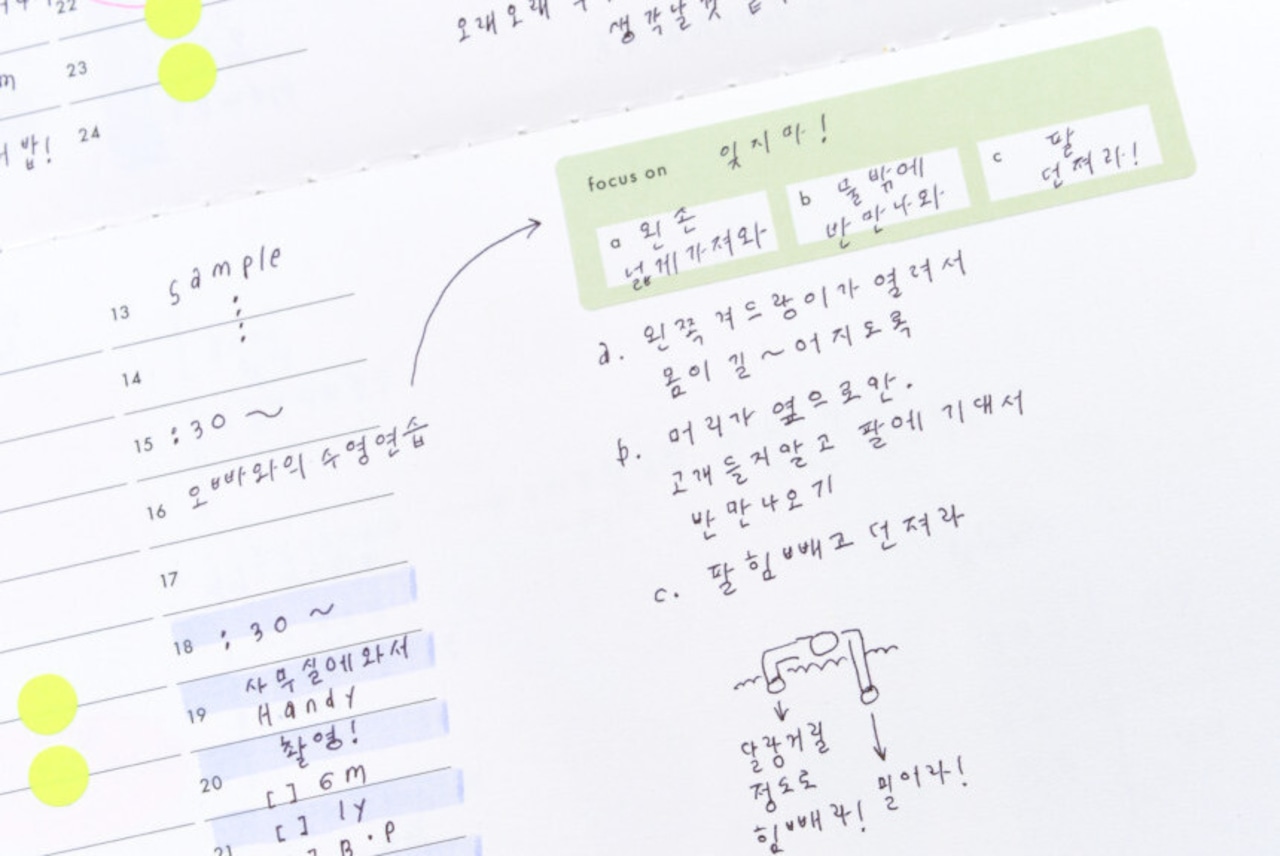 22
23
24
밥!
오래오래
생각날 것
focus on 잊지마!
a 왼손
넓게 가져와
b 물밖에
반만 나와
c 팔
던져라!
13 sample
14
15 :30 ~
16 오빠와의 수영연습
17
18 :30 ~
사무실에 와서
19 Handy
촬영!
20 [ ] 6M
[ ] 1Y
21 ] B.P
a. 왼쪽 겨드랑이가 열려서
몸이 길~어지도록
b. 머리가 옆으로만.
고개 들지말고 팔에 기대서
반만 나오기
c. 팔 힘빼고 던져라
달랑거릴
정도로
힘빼라!
밀어라!